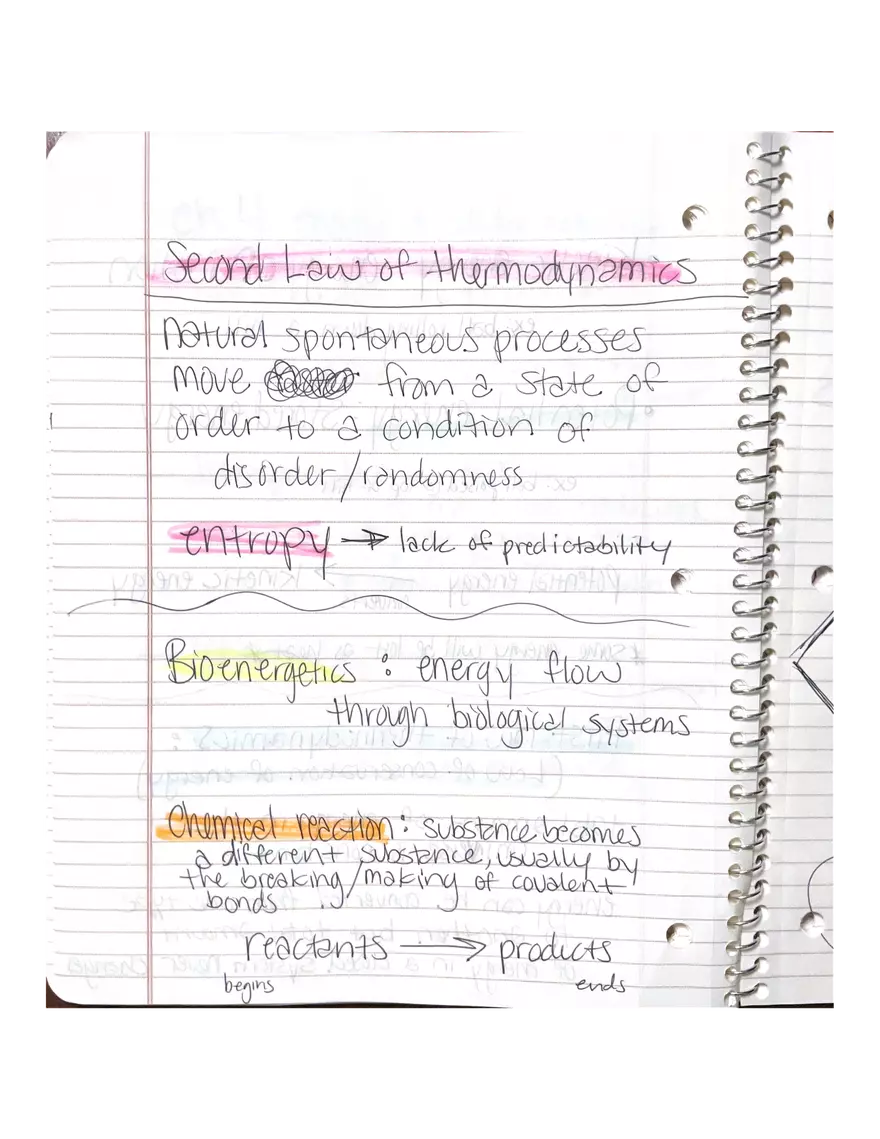 Second Law of thermodynamics
natural spontaneous processes
move from a state of
order to a condition of
disorder/randomness
entropy → lack of predictability
Bioenergetics : energy flow
through biological systems
Chemical reaction: substance becomes
a different substance, usually by
the breaking/making of covalent
bonds.
reactants → products
begins ends